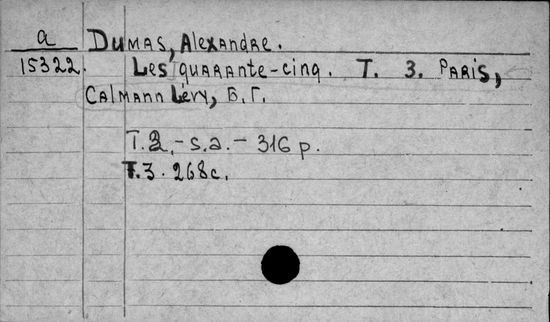 a Dumas, Alexandre.
15322. Les quarante-cinq. T. 3. Paris,
Calmann Lévy, Б.Г.
T.2.-s.a.-316 p.
T.3. 268c.